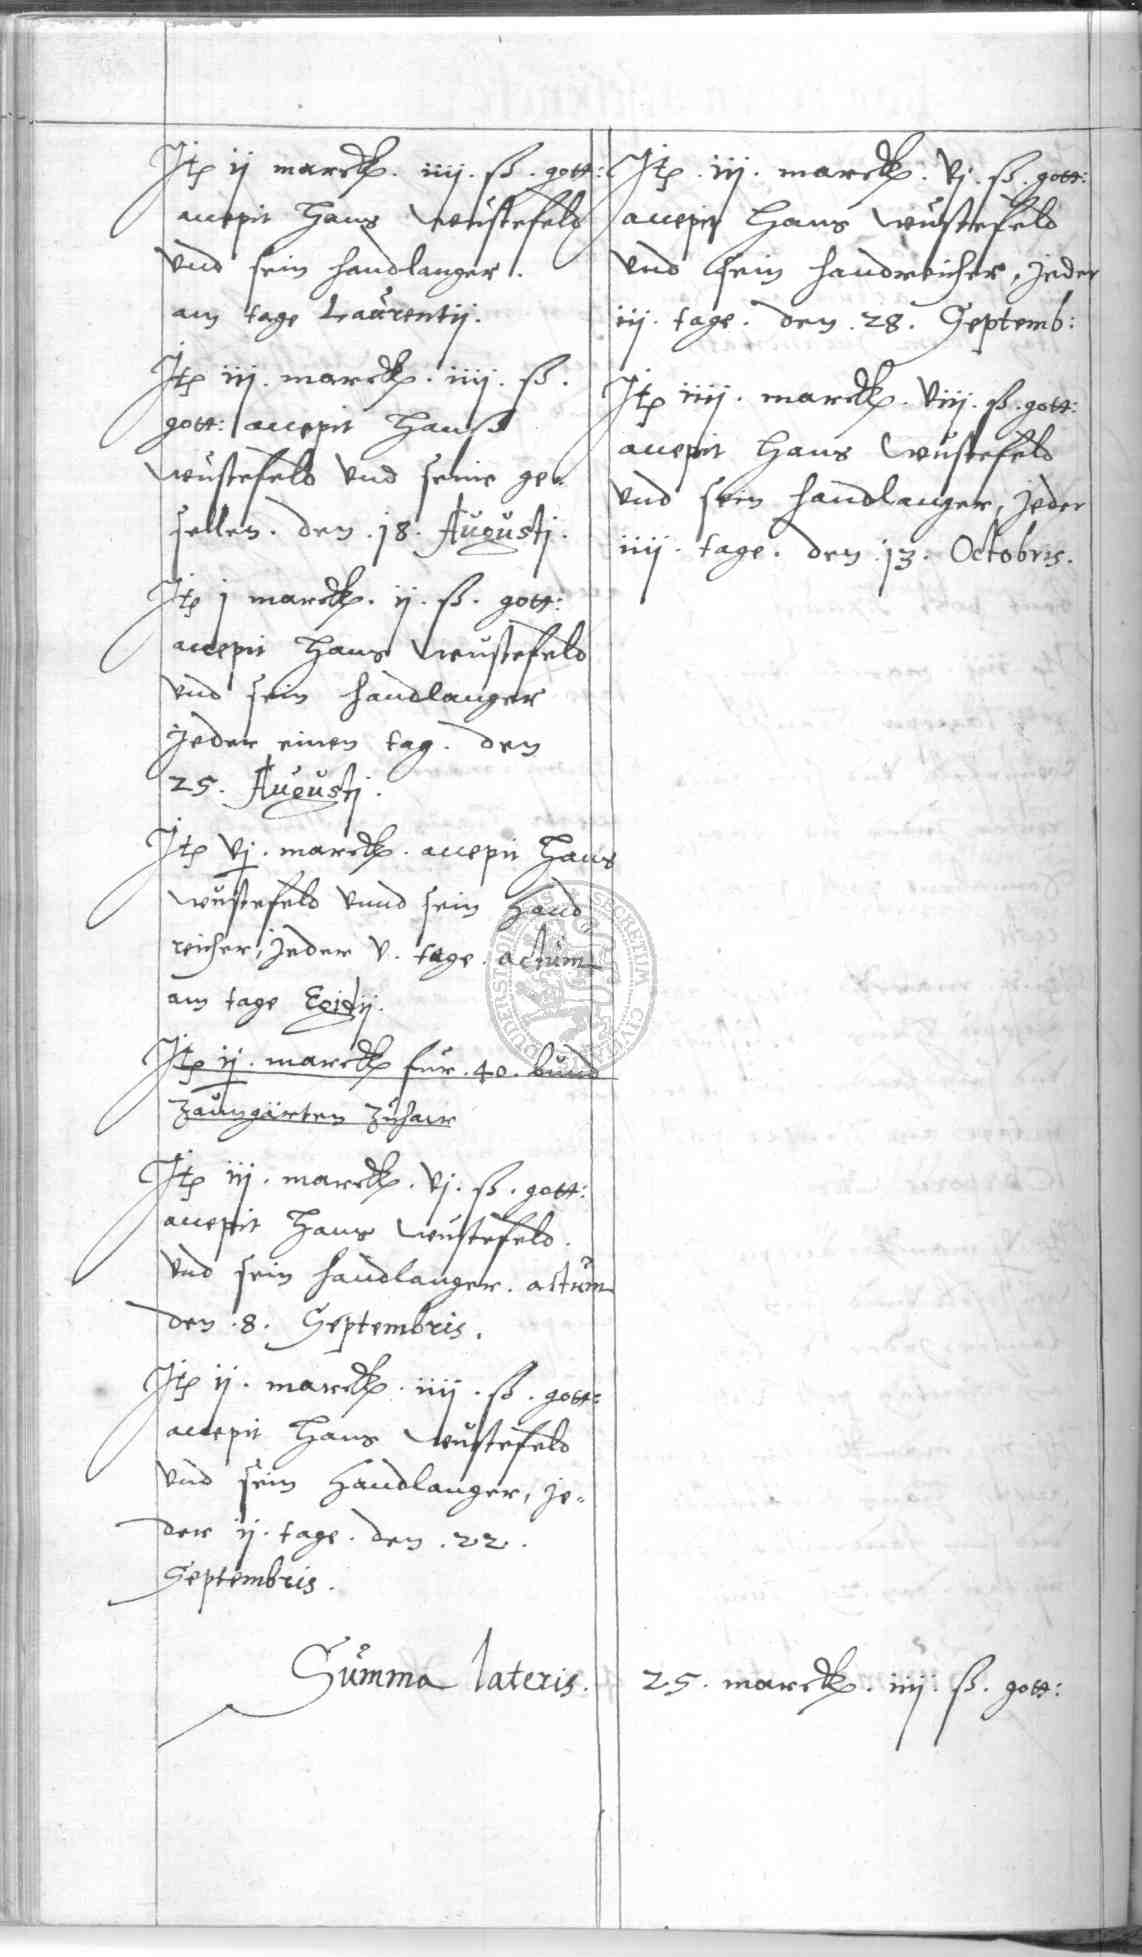 Itꝫ ij marck. iiij. ß. gott:
accepit Hans Wustefeld
vnd sein handlanger.
am tage Laurentij.
Itꝫ iij. marck. iiij. ß.
gott: accepit Hanß
Wustefeld vnd seine ge-
sellen. den .18. Augusti.
Itꝫ j marck. ij. ß. gott:
accepit Hans Wustefeld
vnd sein handlanger
jeder einen tag. den
25. Augusti.
Itꝫ vj. marck. accepit Hans
Wustefeld vnnd sein hand
reicher, jeder v. tage. actum
am tage Egidij.
Itꝫ ij. marck fur .40. bund
Zaungärten
Itꝫ iij. marck. vj. ß. gott:
accepit Hans Wustefeld.
vnd sein handlanger. actum
den .8. Septembris.
Itꝫ ij. marck. iiij. ß. gott:
accepit Hans Wustefeld
vnd sein handlanger, je-
der ij. tage. den .22.
Septembris.
Itꝫ .iij. marck. vj. ß. gott:
accepit Hans Wustefeld
vnd sein handreicher, jeder
iij. tage. den .28. Septemb:
Itꝫ iiij. marck. viij. ß. gott:
accepit Hans Wustefeld
vnd sein handlanger, jeder
iiij. tage. den .13. Octobris.
Summa lateris. 25. marck. iiij. ß. gott:
SECRETUM